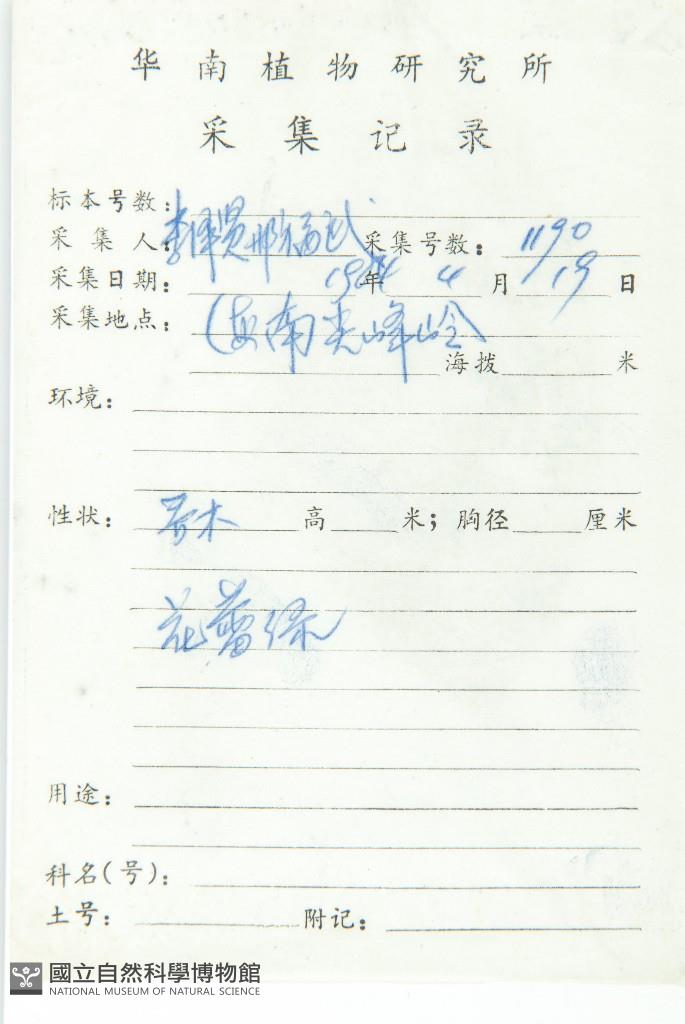 华南植物研究所
采集记录
标本号数:
采集人: 李泽贤 邢福武 采集号数: 1190
采集日期: 1984年 4 月 19 日
采集地点: 海南尖峰岭
海拨 米
环境:
性状: 乔木 高 米; 胸径 厘米
花蕾绿
用途:
科名(号):
土号: 附记:
國立自然科學博物館
NATIONAL MUSEUM OF NATURAL SCIENCE